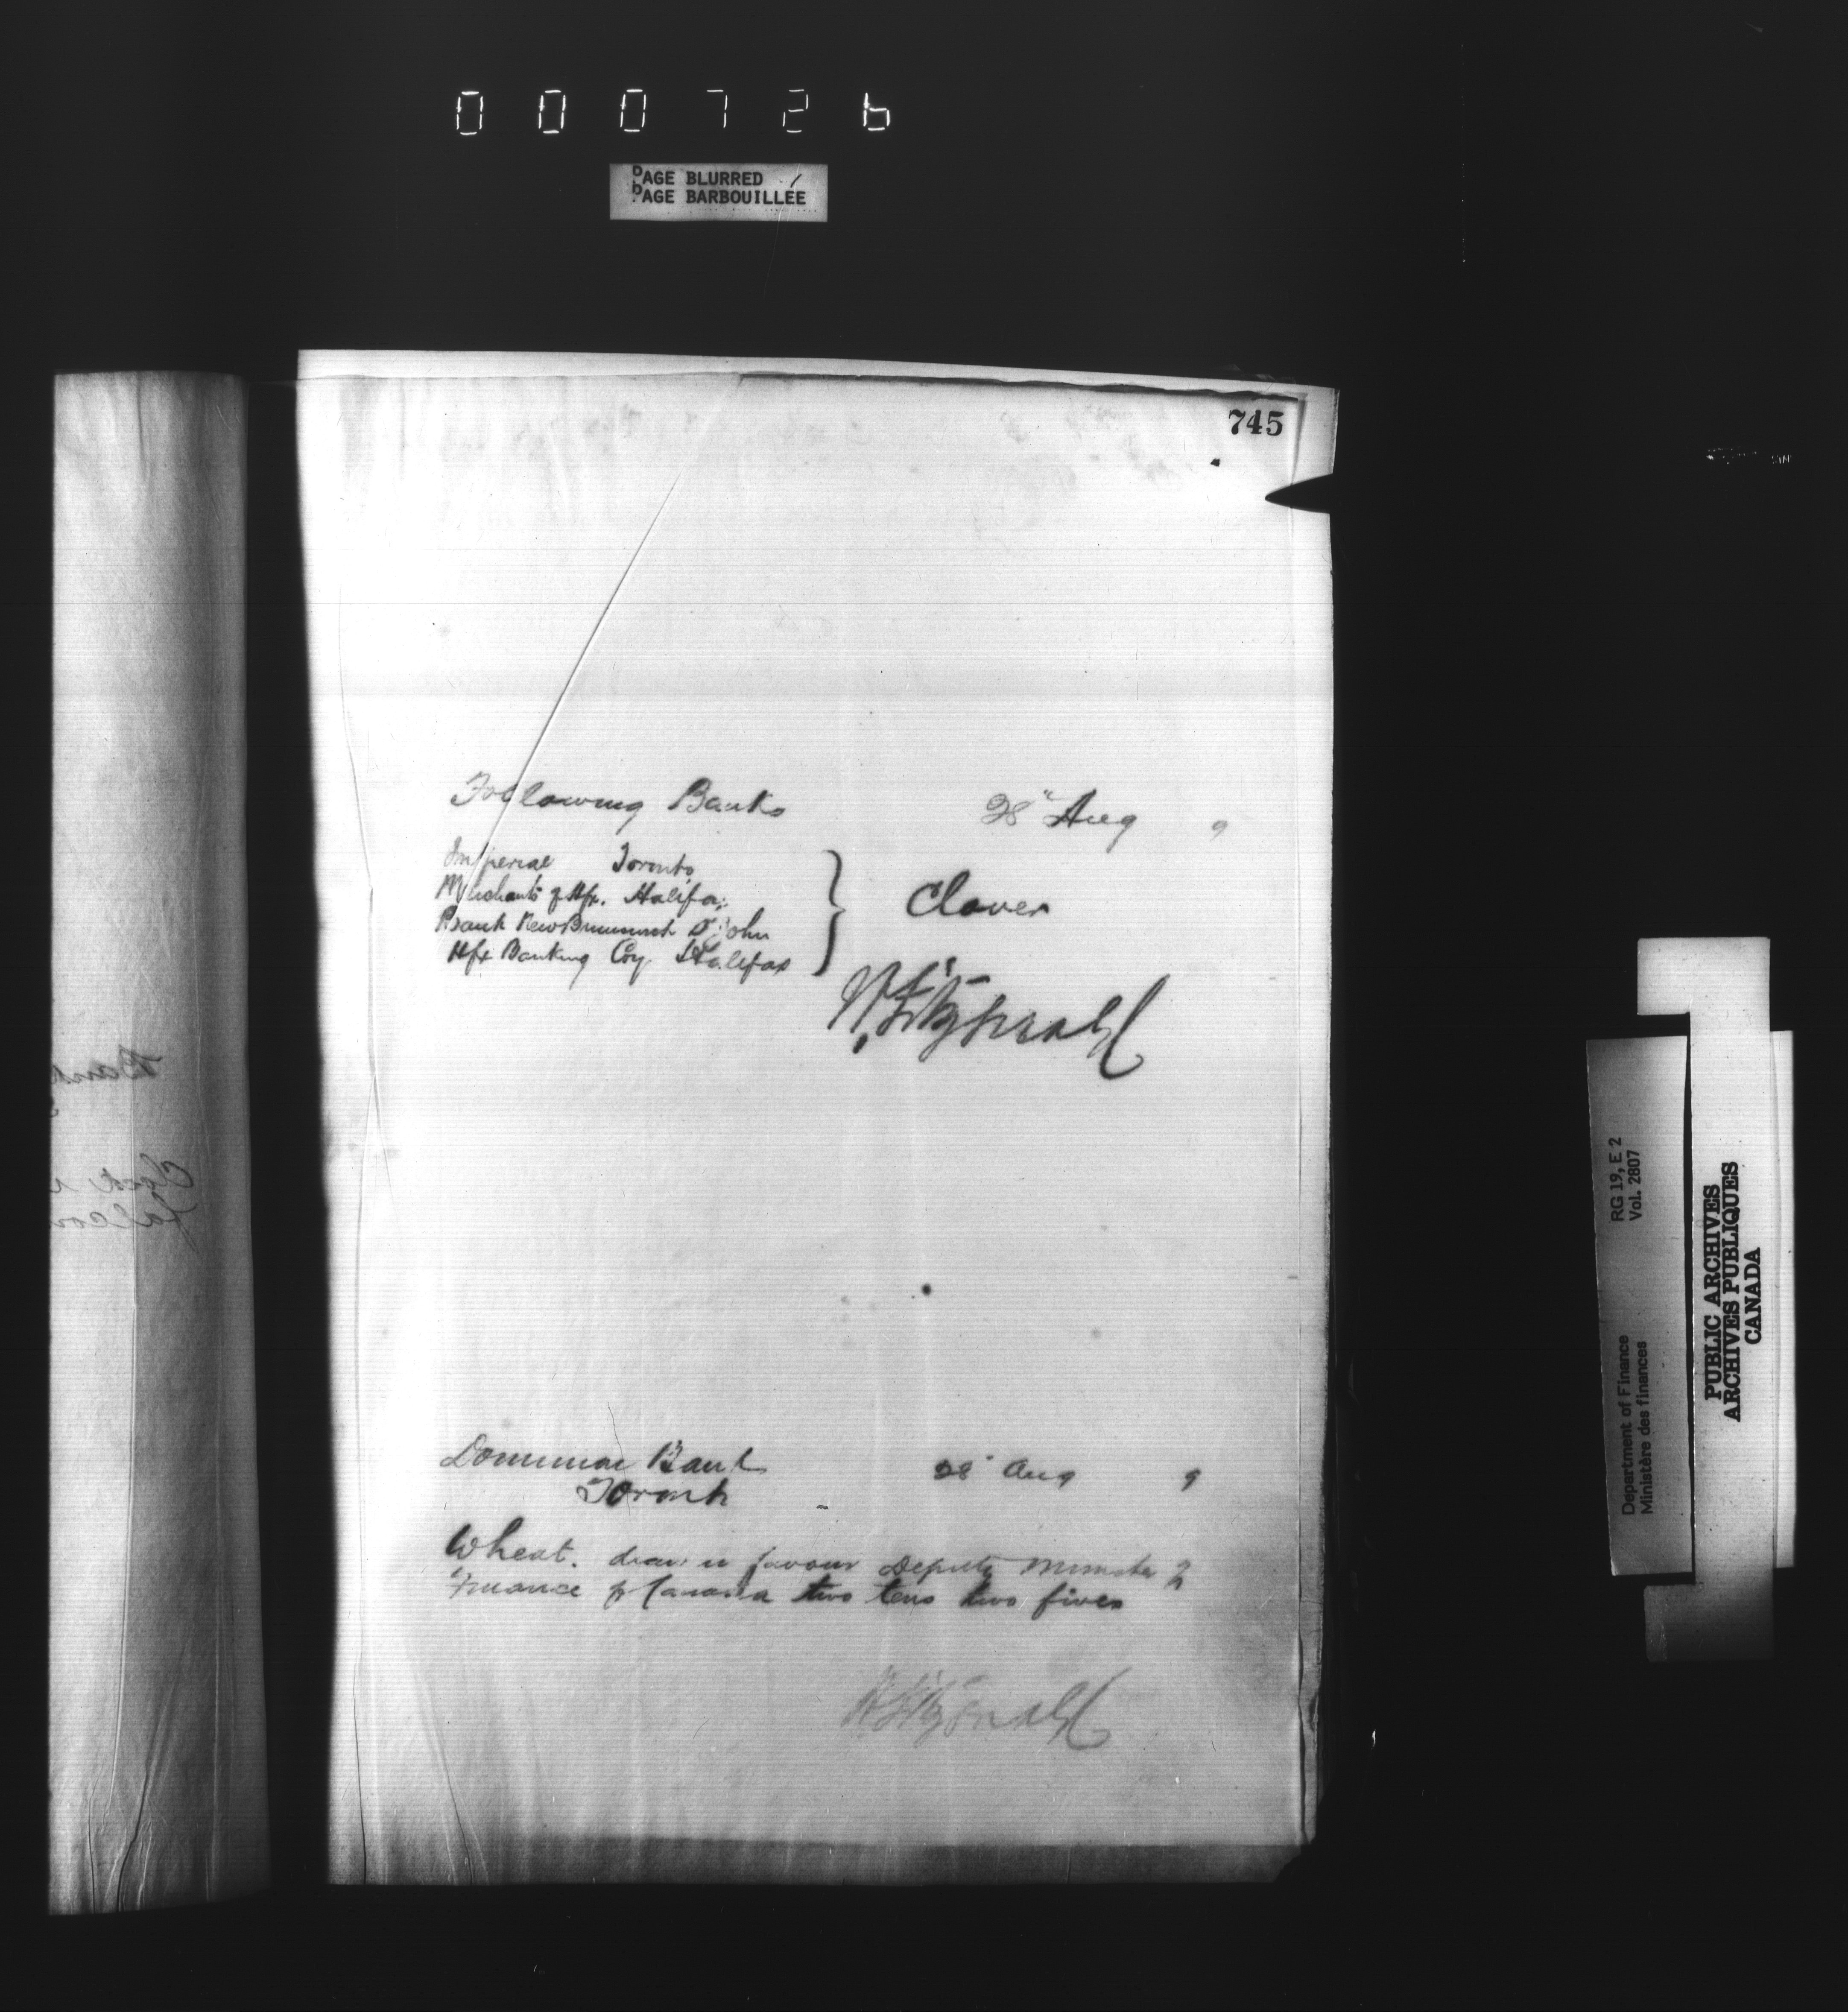 000726
PAGE BLURRED
PAGE BARBOUILLÉE
745
Following Banks 28" Aug 9
Imperial Toronto
Merchants of Hfx. Halifax
Bank New Brunswick St John
Hfx Banking Coy. Halifax
Clover
W Fitzgerald
Dominion Bank 28" Aug 9
Toronto
Wheat. draw in favour Deputy Minister of
Finance of Canada two tens two fives
W Fitzgerald
Bank
RG 19, E 2
Vol. 2807
Department of Finance
Ministère des finances
PUBLIC ARCHIVES
ARCHIVES PUBLIQUES
CANADA